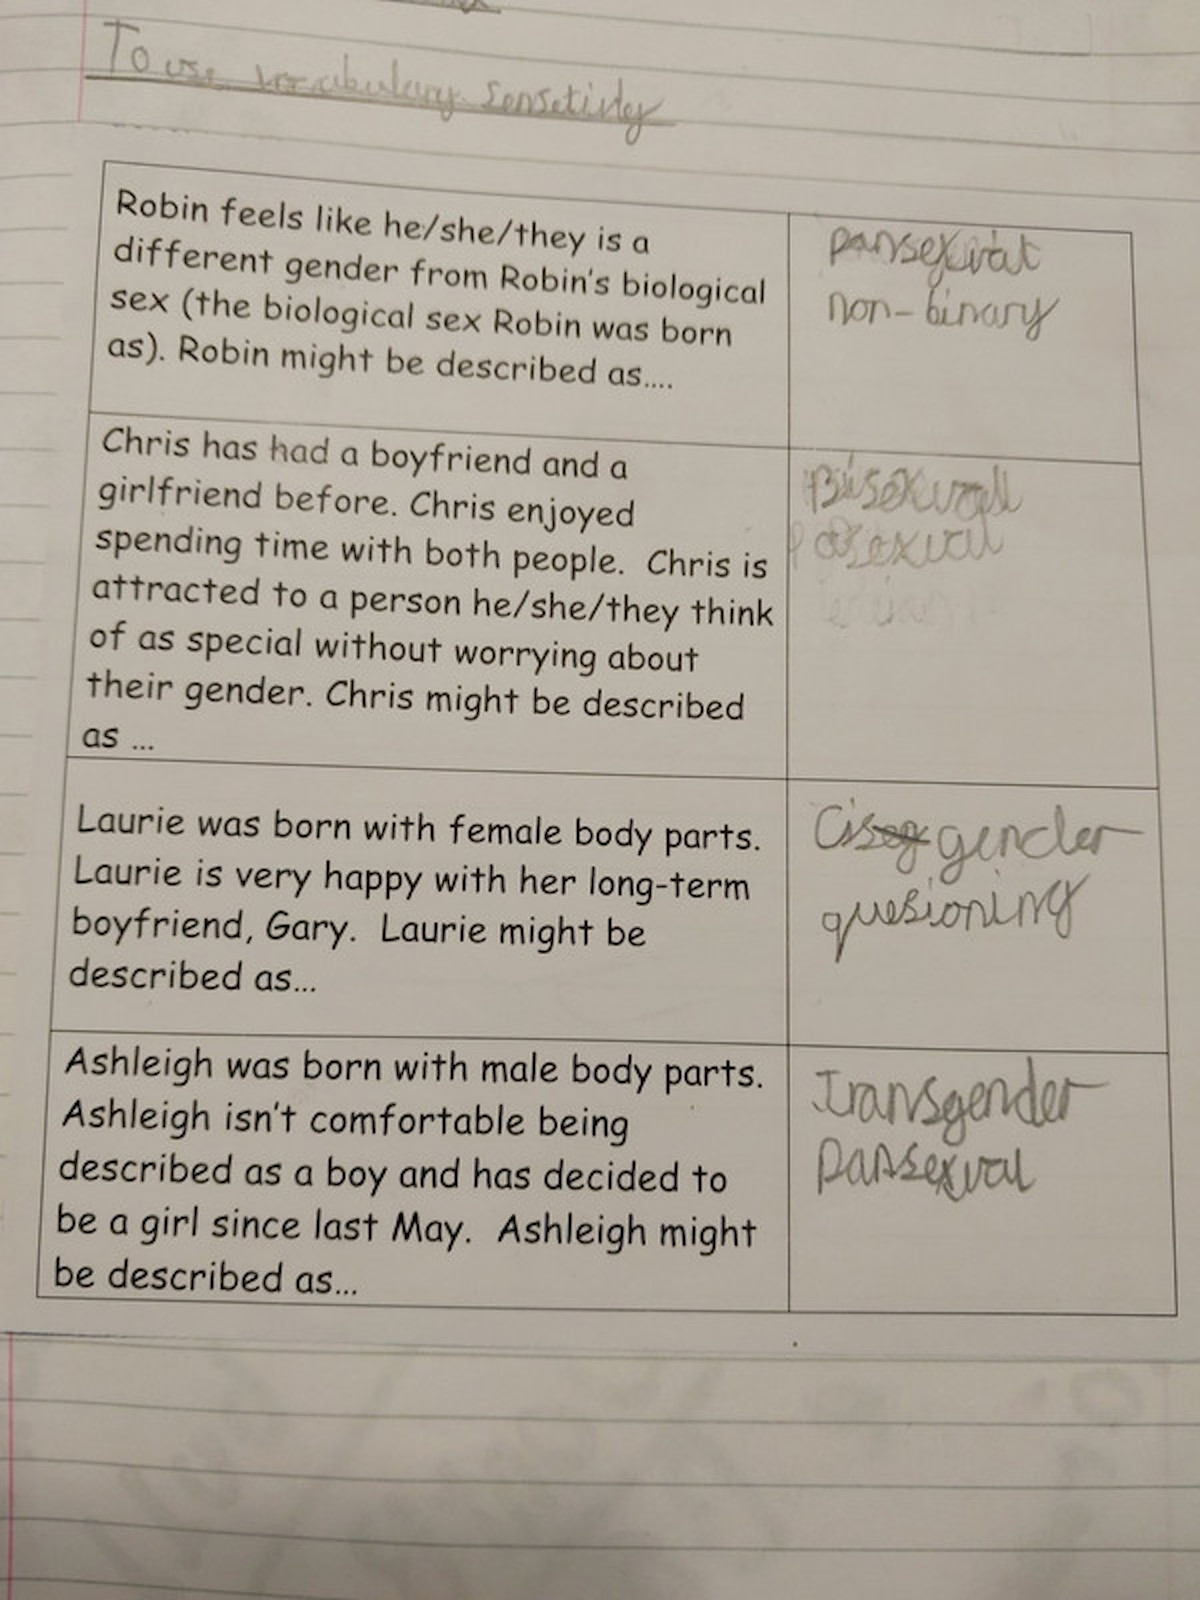 To use vocabulary sensetivley
Robin feels like he/she/they is a
different gender from Robin's biological
sex (the biological sex Robin was born
as). Robin might be described as....
pansexual
non-binary
Chris has had a boyfriend and a
girlfriend before. Chris enjoyed
spending time with both people. Chris is
attracted to a person he/she/they think
of as special without worrying about
their gender. Chris might be described
as ...
Bisexual
asexual
Laurie was born with female body parts.
Laurie is very happy with her long-term
boyfriend, Gary. Laurie might be
described as...
Cis gender
quesioning
Ashleigh was born with male body parts.
Ashleigh isn't comfortable being
described as a boy and has decided to
be a girl since last May. Ashleigh might
be described as...
Transgender
pansexual